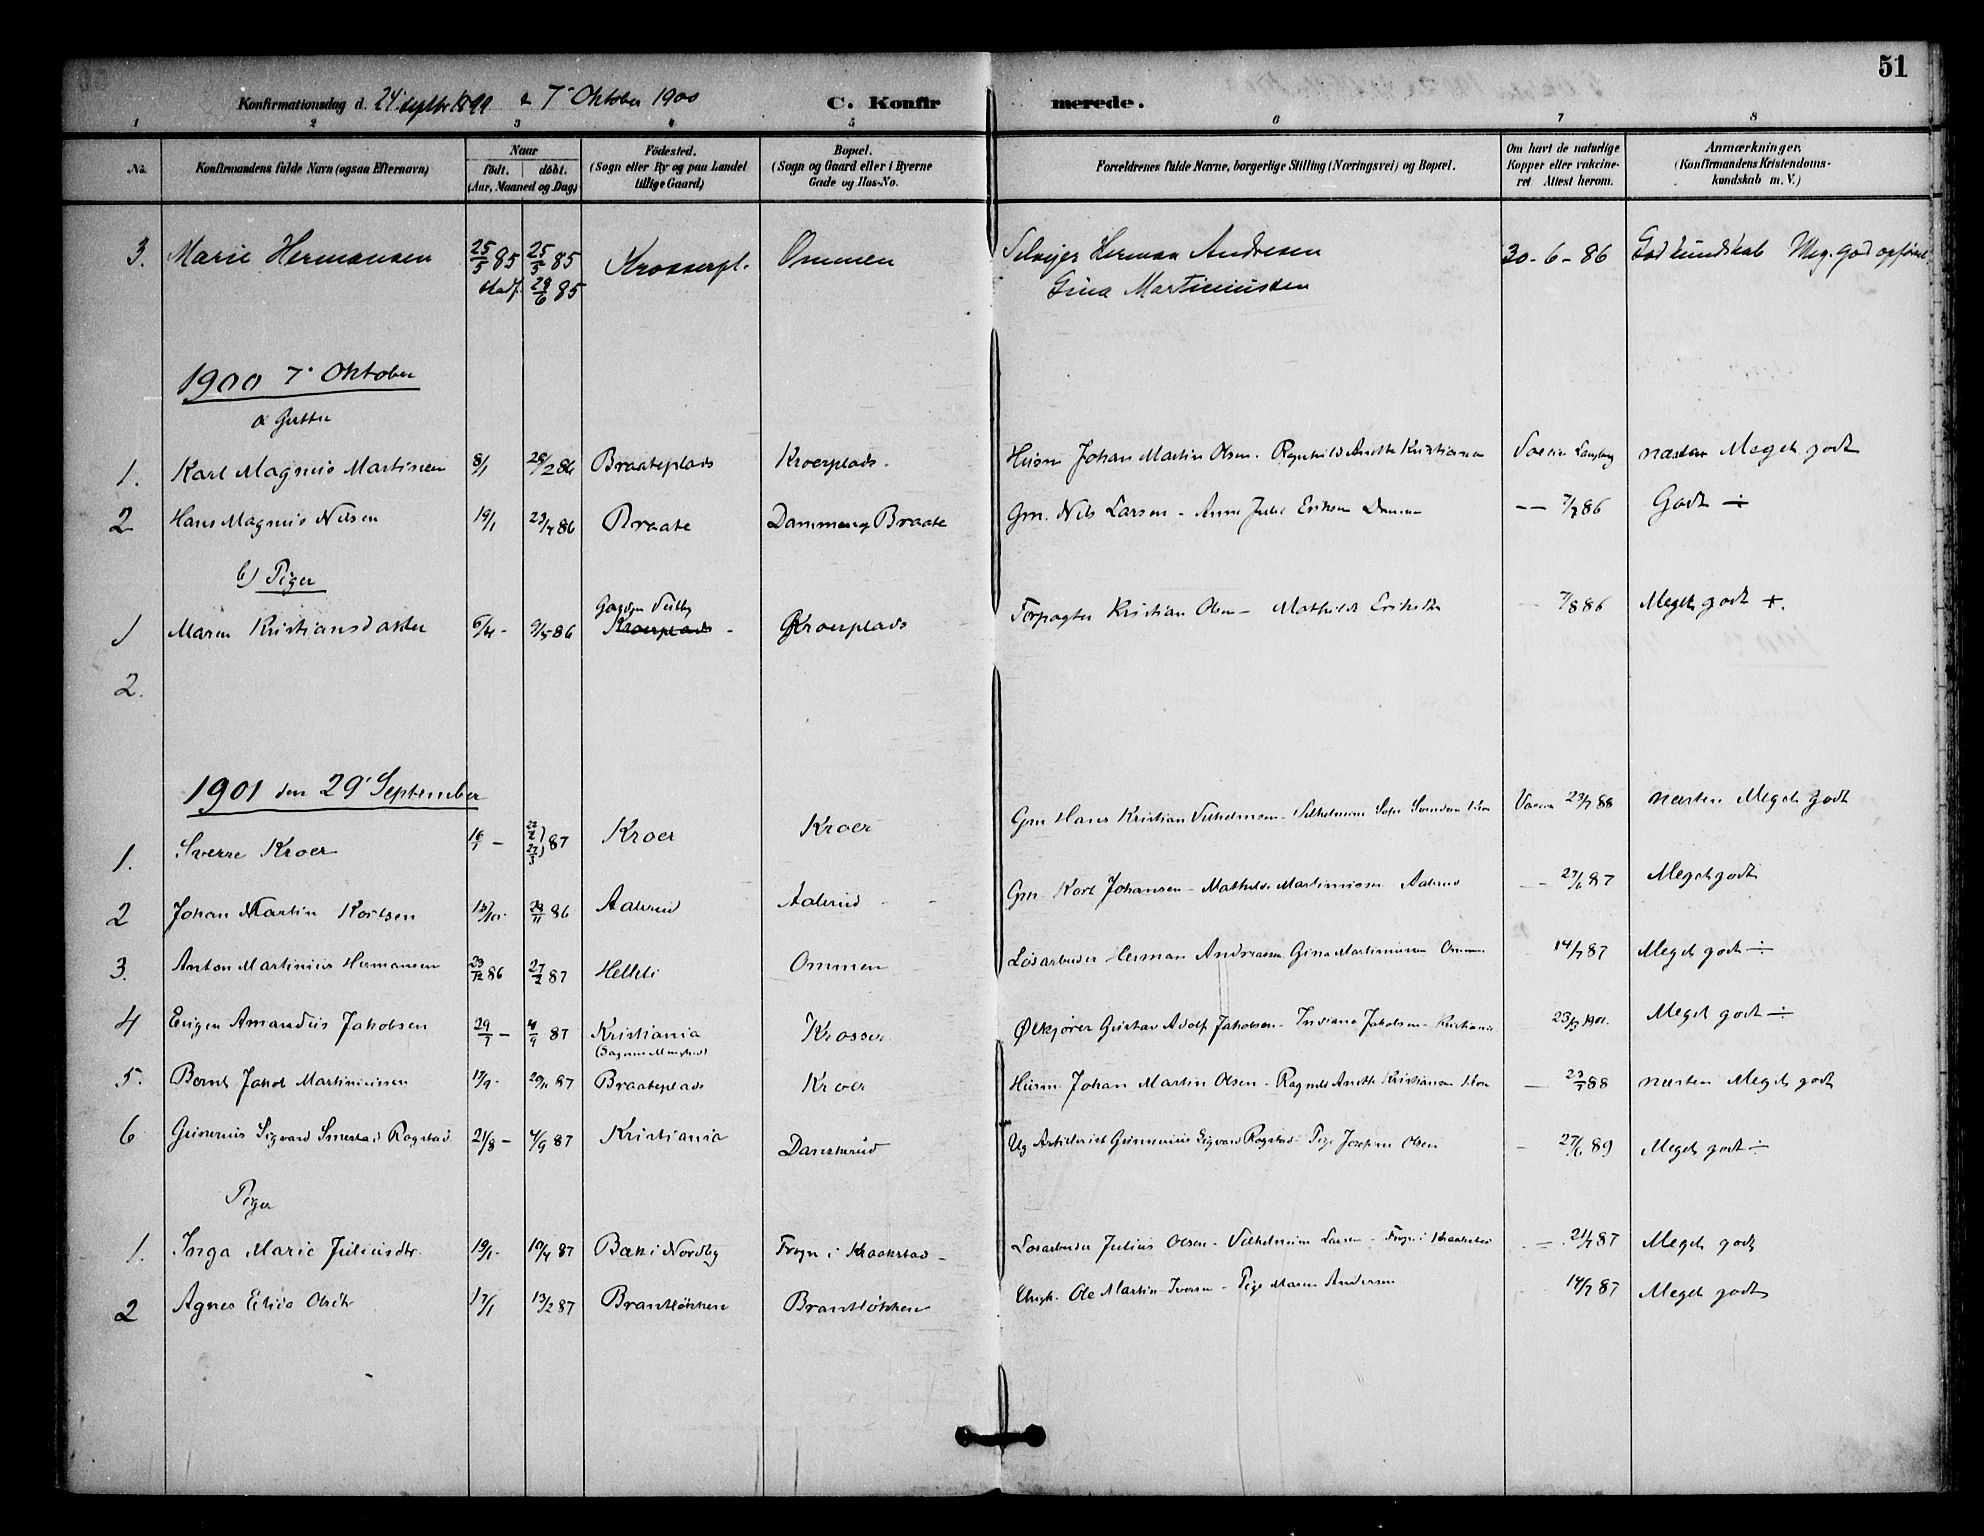 51
Konfirmationsdag d. 24 septbr 1899 & 7 Oktober 1900 C. Konfirmerede.
1 2 3 4 5 6 7 8
No. Konfirmandens fulde Navn (ogsaa Efternavn) Naar født. døbt. (Aar, Maaned og Dag) Fødested. (Sogn eller By og paa Landet tillige Gaard) Bopæl. (Sogn og Gaard eller i Byerne Gade og Hus-No. Forældrenes fulde Navne, borgerlige Stilling (Næringsvei) og Bopæl. Om havt de naturlige Kopper eller vakcineret Attest herom. Anmærkninger. (Konfirmandens Kristendomskundskab m. V.)
3. Marie Hermansen 25/5 85 25/5 85 Krosserpl. Ommen Selveier Herman Andresen 30-6-86 God kundskab Meg. god opførsel
stadf. 29/6 85 Gina Martiniussen
1900 7 Oktober
a Gutter
1. Karl Magnus Martinsen 8/1 28/2 86 Braateplads Kroerplads. Husm Johan Martin Olsen. Ragnhild Anette Kristiansen næsten Meget godt
2 Hans Magnus Nilsen 19/1 Braate Dammen Braate Gm. Nils Larsen - Anne Julie Eriksen Godt ÷
b) Piger
1 Maren Kristiansdatter 6/4 - 9/5 86 Kroerplads - Kroerplads Forpagter Kristian Olsen - Mathilde 7/8 86 Meget godt +.
2.
1901 den 29 September
1. Sverre Kroer 16/1 - 22/2) 27/3) 87 Kroer Kroer Gm Hans Kristian Vilhelmsen - Vilhelmine Sofie 23/7 88 næsten Meget godt
2 Johan Martin Karlsen 86 Aalerud Aalerud Gm. Karl Johansen - Mathilde Martiniussen Aalerud - 27/6 87 Meget godt
3. Anton Martinius Hermansen 23/12 86 27/2 87 Helleli Ommen Løsarbeider Herman Andreassen Gina Martiniussen Ommen 14/7 87 Meget godt ÷
4 Eugen Amandus Jakobsen 29/7 - 4/9 87 Kristiania Krosser Ølkjører Gustav Adolf Jakobsen - Indiana Jakobsen - Kristiania 23/3 1901. Meget godt ÷
5. Bernt Jakob Martiniussen 17/9 - 20/11 87 Braateplads Kroer Husm Johan Martin Olsen - Ragnh. Anette Kristiansen - 23/7 88 næsten Meget godt
6 Gunerius Sigvard Smestad Rogstad 21/8 - 4/9 87 Kristiania Danskerud Ug Artillerist Gunnerius Sigvard Rogstad - Pige Josefine Olsen - 27/6 89 Meget godt ÷
Piger
1. Inga Marie Juliusdtr. 19/1 - 10/4 87 Bæk i Nordby Frogn i Kraakstad - Løsarbeider Julius Olsen - Vilhelmine Larsen - Frogn i Kraakstad 21/7 87 Meget godt
2 Agnes Elida Olsdtr 17/1 13/2 87 Brantløkken Brantløkken Ungk. Ole Martin Iversen - Pige Maren Andersen 14/7 87 Meget godt